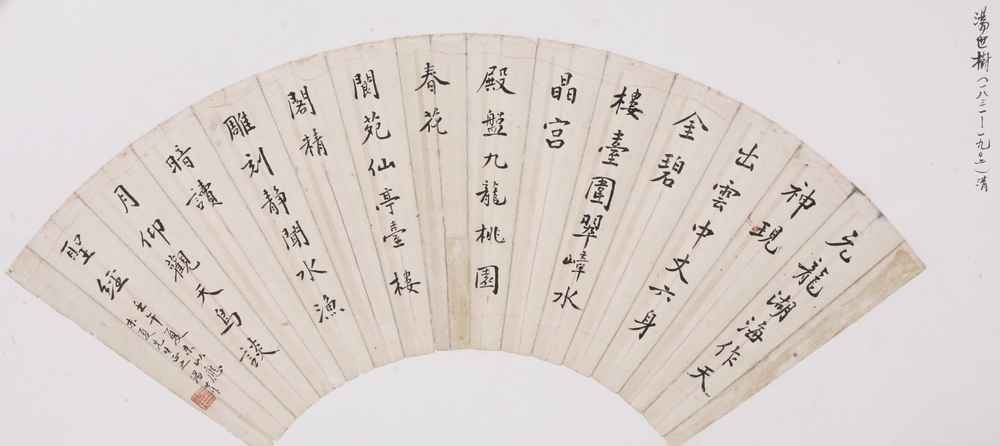 湯世樹(一八三一一九)清
元龍湖海作天
神現
出雲中丈六身
金碧
樓臺圍翠嶂水
晶宮
殿盤九龍桃園
春花
閬苑仙亭臺樓
閣精
雕刻靜聞水漁
暗讀
月仰觀天鳥談
聖經
壬午夏